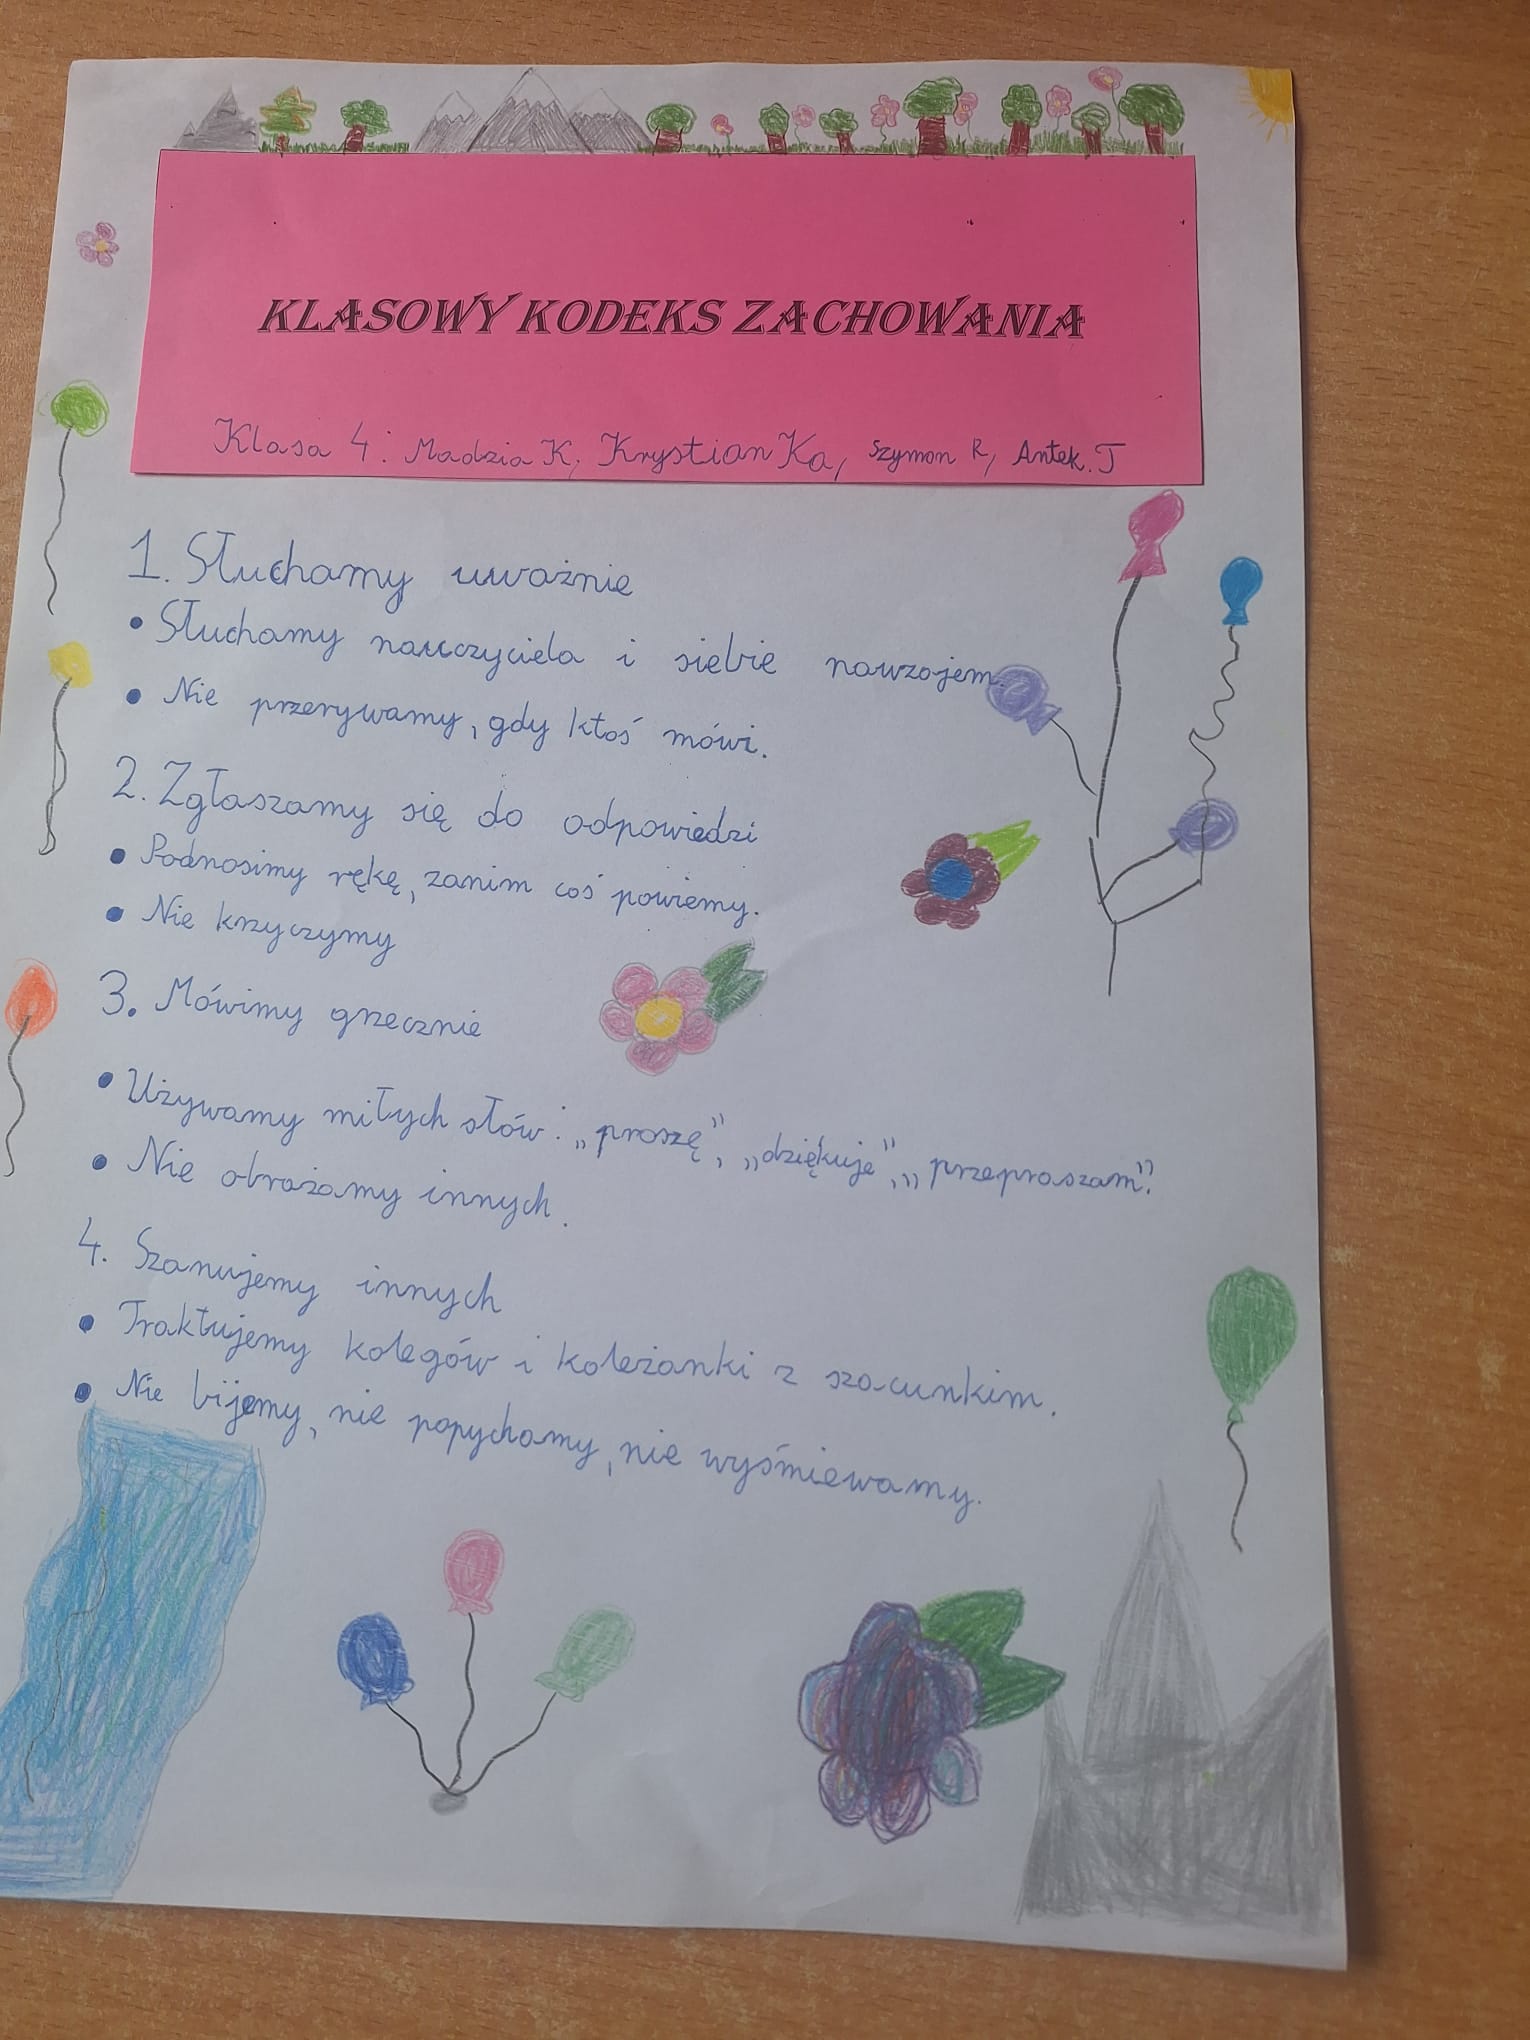 KLASOWY KODEKS ZACHOWANIA
Klasa 4: Madzia K, Krystian Ka, Szymon R, Antek.T
1. Słuchamy uważnie
• Słuchamy nauczyciela i siebie nawzajem.
• Nie przerywamy, gdy ktoś mówi.
2. Zgłaszamy się do odpowiedzi
• Podnosimy rękę, zanim coś powiemy.
• Nie krzyczymy
3. Mówimy grzecznie
• Używamy miłych słów: „proszę", „dziękuje", „przepraszam".
• Nie obrażamy innych.
4. Szanujemy innych
• Traktujemy kolegów i koleżanki z szacunkim.
• Nie bijemy, nie popychamy, nie wyśmiewamy.